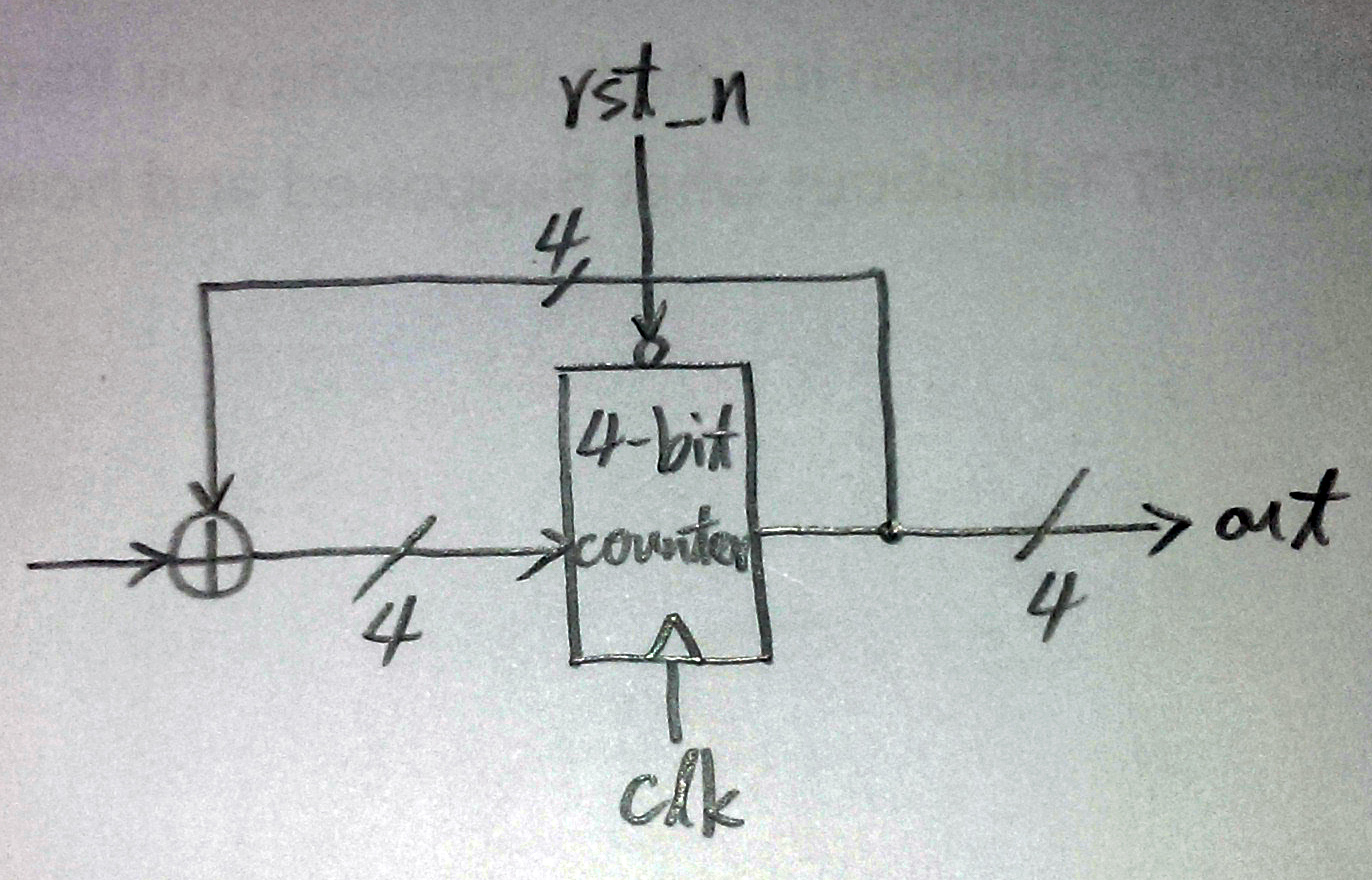 rst_n
4
4-bit
counter
out
4
4
clk